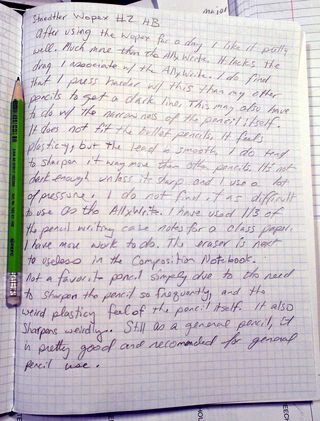 Staedtler Wopex #2 HB
After using the Wopex for a day I like it pretty
well. Much more than the AllyWrite. It lacks the
drag I associate w/ the AllyWrite. I do find
that I press harder w/ this than my other
pencils to get a dark line. This may also have
to do w/ the narrowness of the pencil itself.
It does not fit the bullet pencils. It feels
plasticy, but the lead is smooth. I do tend
to sharpen it way more than other pencils. It's not
dark enough unless its sharp and I use a lot
of pressure. I do not find it as difficult
to use as the AllyWrite. I have used 1/3 of
the pencil writing case notes for a class paper.
I have more work to do. The eraser is next
to useless in the Composition Notebook.
Not a favorite pencil simply due to the need
to sharpen the pencil so frequently, and the
weird plasticy feel of the pencil itself. It also
sharpens weirdly. Still as a general pencil, it
is pretty good and recomended for general
pencil use.